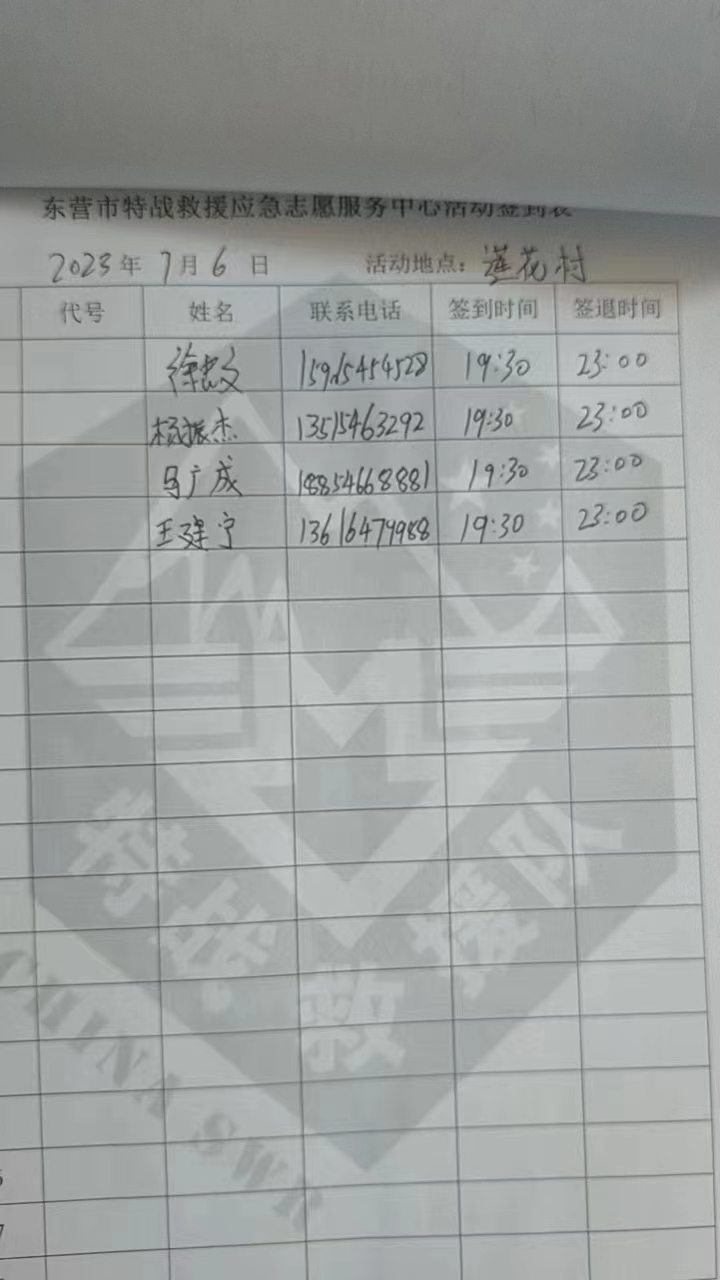 东营市特战救援应急志愿服务中心活动签到表
2023年7月6日 活动地点：莲花村
代号 姓名 联系电话 签到时间 签退时间
徐忠文 15965454528 19:30 23:00
杨振杰 13515463292 19:30 23:00
马广成 18854668881 19:30 23:00
王建宁 13616479988 19:30 23:00
特战救援队
CHINA SWR
7